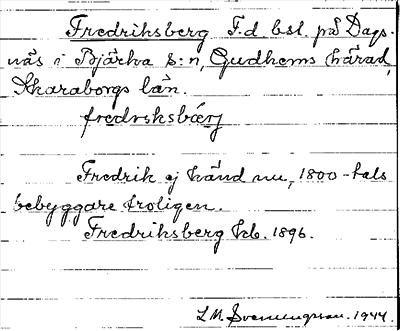 Fredriksberg F.d. bst. på Dags-
näs i Bjärka s:n, Gudhems härad,
Skaraborgs län.
fredrɩksbærj
Fredrik ej känd nu, 1800-tals
bebyggare troligen.
Fredriksberg kb. 1896.
L.M. Svenungsson. 1944.